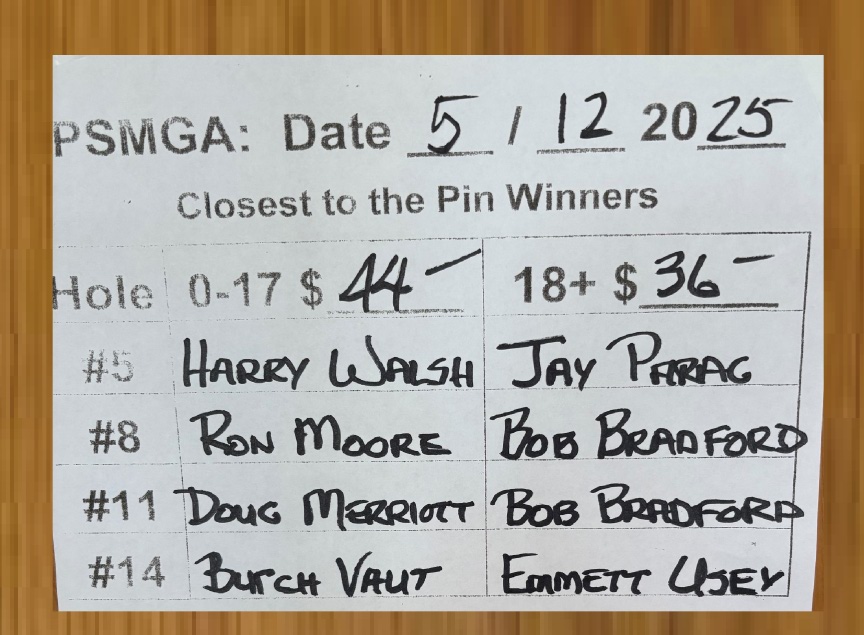 PSMGA: Date 5 / 12 2025
Closest to the Pin Winners
Hole 0-17 $ 44 — 18+ $ 36 —
#5 HARRY WALSH JAY PARAG
#8 RON MOORE BOB BRADFORD
#11 DOUG MERRIOTT BOB BRADFORD
#14 BUTCH VAUT EMMETT USEY